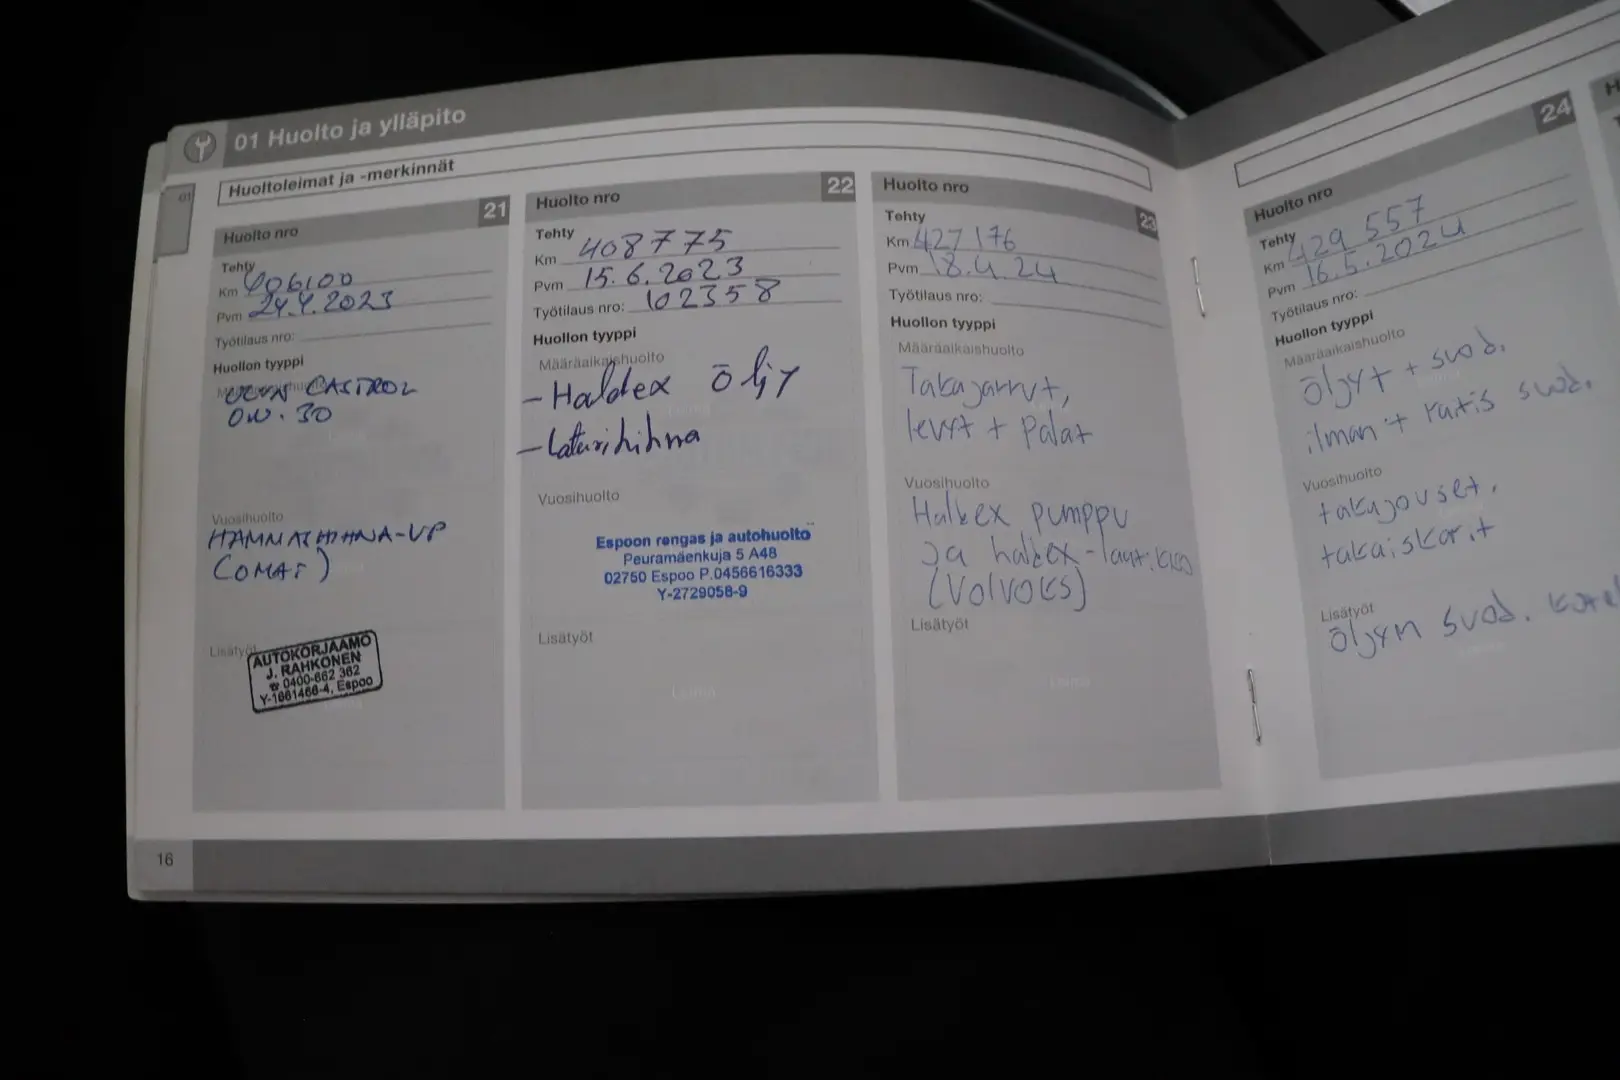 01 Huolto ja ylläpito
Huoltoleimat ja -merkinnät
01
Huolto nro 21
Tehty
Km 406100
Pvm 24.4.2023
Työtilaus nro:
Huollon tyyppi
CASTROL
0W.30
Vuosihuolto
HAMMASHIHNA-VP
(OMAT)
Lisätyöt
AUTOKORJAAMO
J. RAHKONEN
☎ 0400-662 362
Y-1661466-4, Espoo
Huolto nro 22
Tehty
Km 408775
Pvm 15.6.2023
Työtilaus nro: 102358
Huollon tyyppi
Määräaikaishuolto
- Haldex öljy
- Laturihihna
Vuosihuolto
Espoon rengas ja autohuolto
Peuramäenkuja 5 A48
02750 Espoo P.0456616333
Y-2729056-9
Lisätyöt
Leima
Huolto nro 23
Tehty
Km 427176
Pvm 18.4.24
Työtilaus nro:
Huollon tyyppi
Määräaikaishuolto
Takajarrut,
levyt + palat
Vuosihuolto
Haldex pumppu
ja haldex-
(VOLVOKS)
Lisätyöt
Leima
Huolto nro 24
Tehty
Km 429 557
Pvm 16.5.2024
Työtilaus nro:
Huollon tyyppi
Määräaikaishuolto
öljyt + suod.
ilman + raitis suod.
Vuosihuolto
takajouset.
takaiskarit
Lisätyöt
öljyn suod.
16